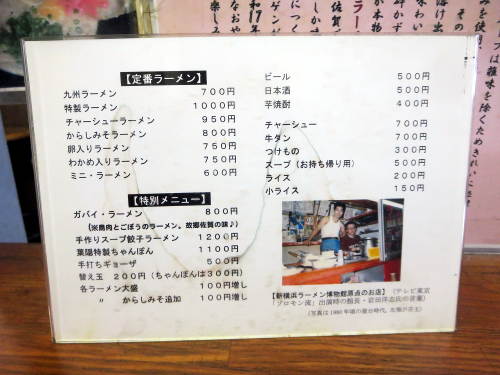 【定番ラーメン】
九州ラーメン 700円
特製ラーメン 1000円
チャーシューラーメン 950円
からしみそラーメン 800円
卵入りラーメン 750円
わかめ入りラーメン 750円
ミニ・ラーメン 600円
【特別メニュー】
ガバイ・ラーメン 800円
(米鶏肉とごぼうのラーメン。故郷佐賀の味♪)
手作りスープ餃子ラーメン 1200円
葉陽特製ちゃんぽん 1100円
手打ちギョーザ 500円
替え玉 200円(ちゃんぽんは300円)
各ラーメン大盛 100円増し
〃 からしみそ追加 100円増し
ビール 500円
日本酒 500円
芋焼酎 400円
チャーシュー 700円
牛タン 700円
つけもの 300円
スープ(お持ち帰り用) 500円
ライス 200円
小ライス 150円
【新横浜ラーメン博物館原点のお店】(テレビ東京
プロモン流」出演時の館長・岩田洋志氏の言葉)
(写真は1980年頃の屋台時代、左端が店主)